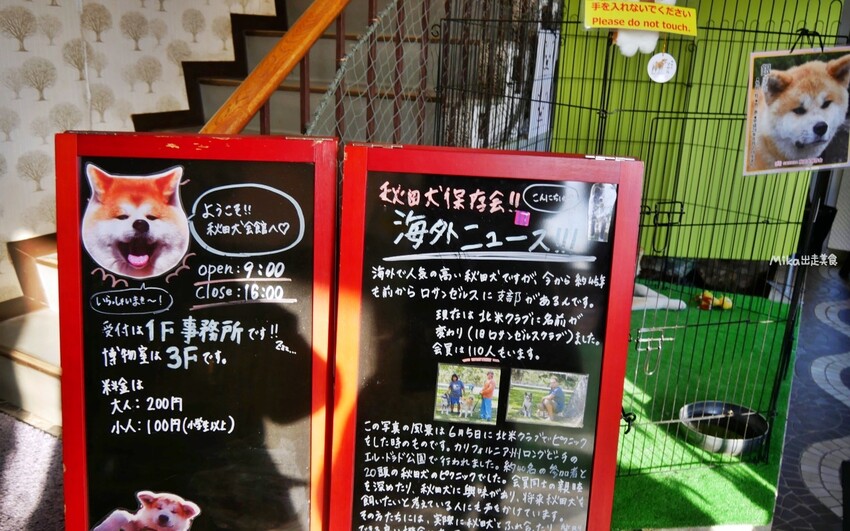 手を入れないでください
Please do not touch.
Mika出走美食
ようこそ!!
秋田犬会館へ♡
open: 9:00
close: 16:00
いらっしゃいませ〜!
受付は1F事務所です!!
博物室は3Fです。
Zzz...
料金は
大人: 200円
小人: 100円(小学生以上)
秋田犬保存会!!
こんにちは
海外ニュース!!!
海外で人気の高い秋田犬ですが、今から約45年
も前からロサンゼルスに支部があるんです。
現在は北米クラブに名前が
変わり(旧ロサンゼルスクラブ)ました。
会員は110人もいます。
この写真の風景は6月5日に北米クラブでピクニック
をした時のものです。カリフォルニア州ロングビーチの
エル・ドラド公園で行われました。約40名の参加者と
20頭の秋田犬のピクニックでした。会員同士の親睦
を深めたり、秋田犬に興味があり、将来秋田犬を
飼いたいと考えている人にも声をかけています。
そのうたちには、実際に秋田犬とふれ合ったり